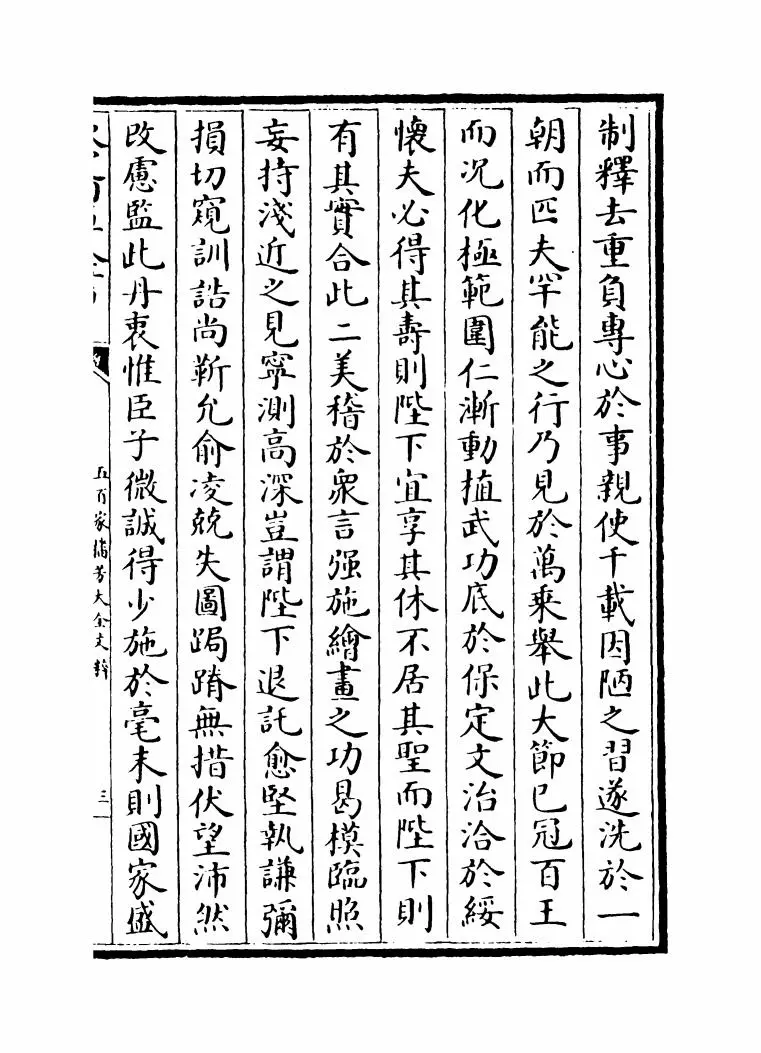 制釋去重負專心於事親使千載因陋之習遂洗於一
朝而匹夫罕能之行乃見於萬乘舉此大節已冠百王
而况化極範圍仁漸動植武功底於保定文治洽於綏
懷夫必得其壽則陛下宜享其休不居其聖而陛下則
有其實合此二美稽於衆言强施繪畫之功曷模臨照
妄持淺近之見寧測高深豈謂陛下退託愈堅執謙彌
損切窺訓誥尚靳允俞凌兢失圖跼蹐無措伏望沛然
改慮監此丹衷惟臣子微誠得少施於毫末則國家盛
五百家播芳大全文粹
三